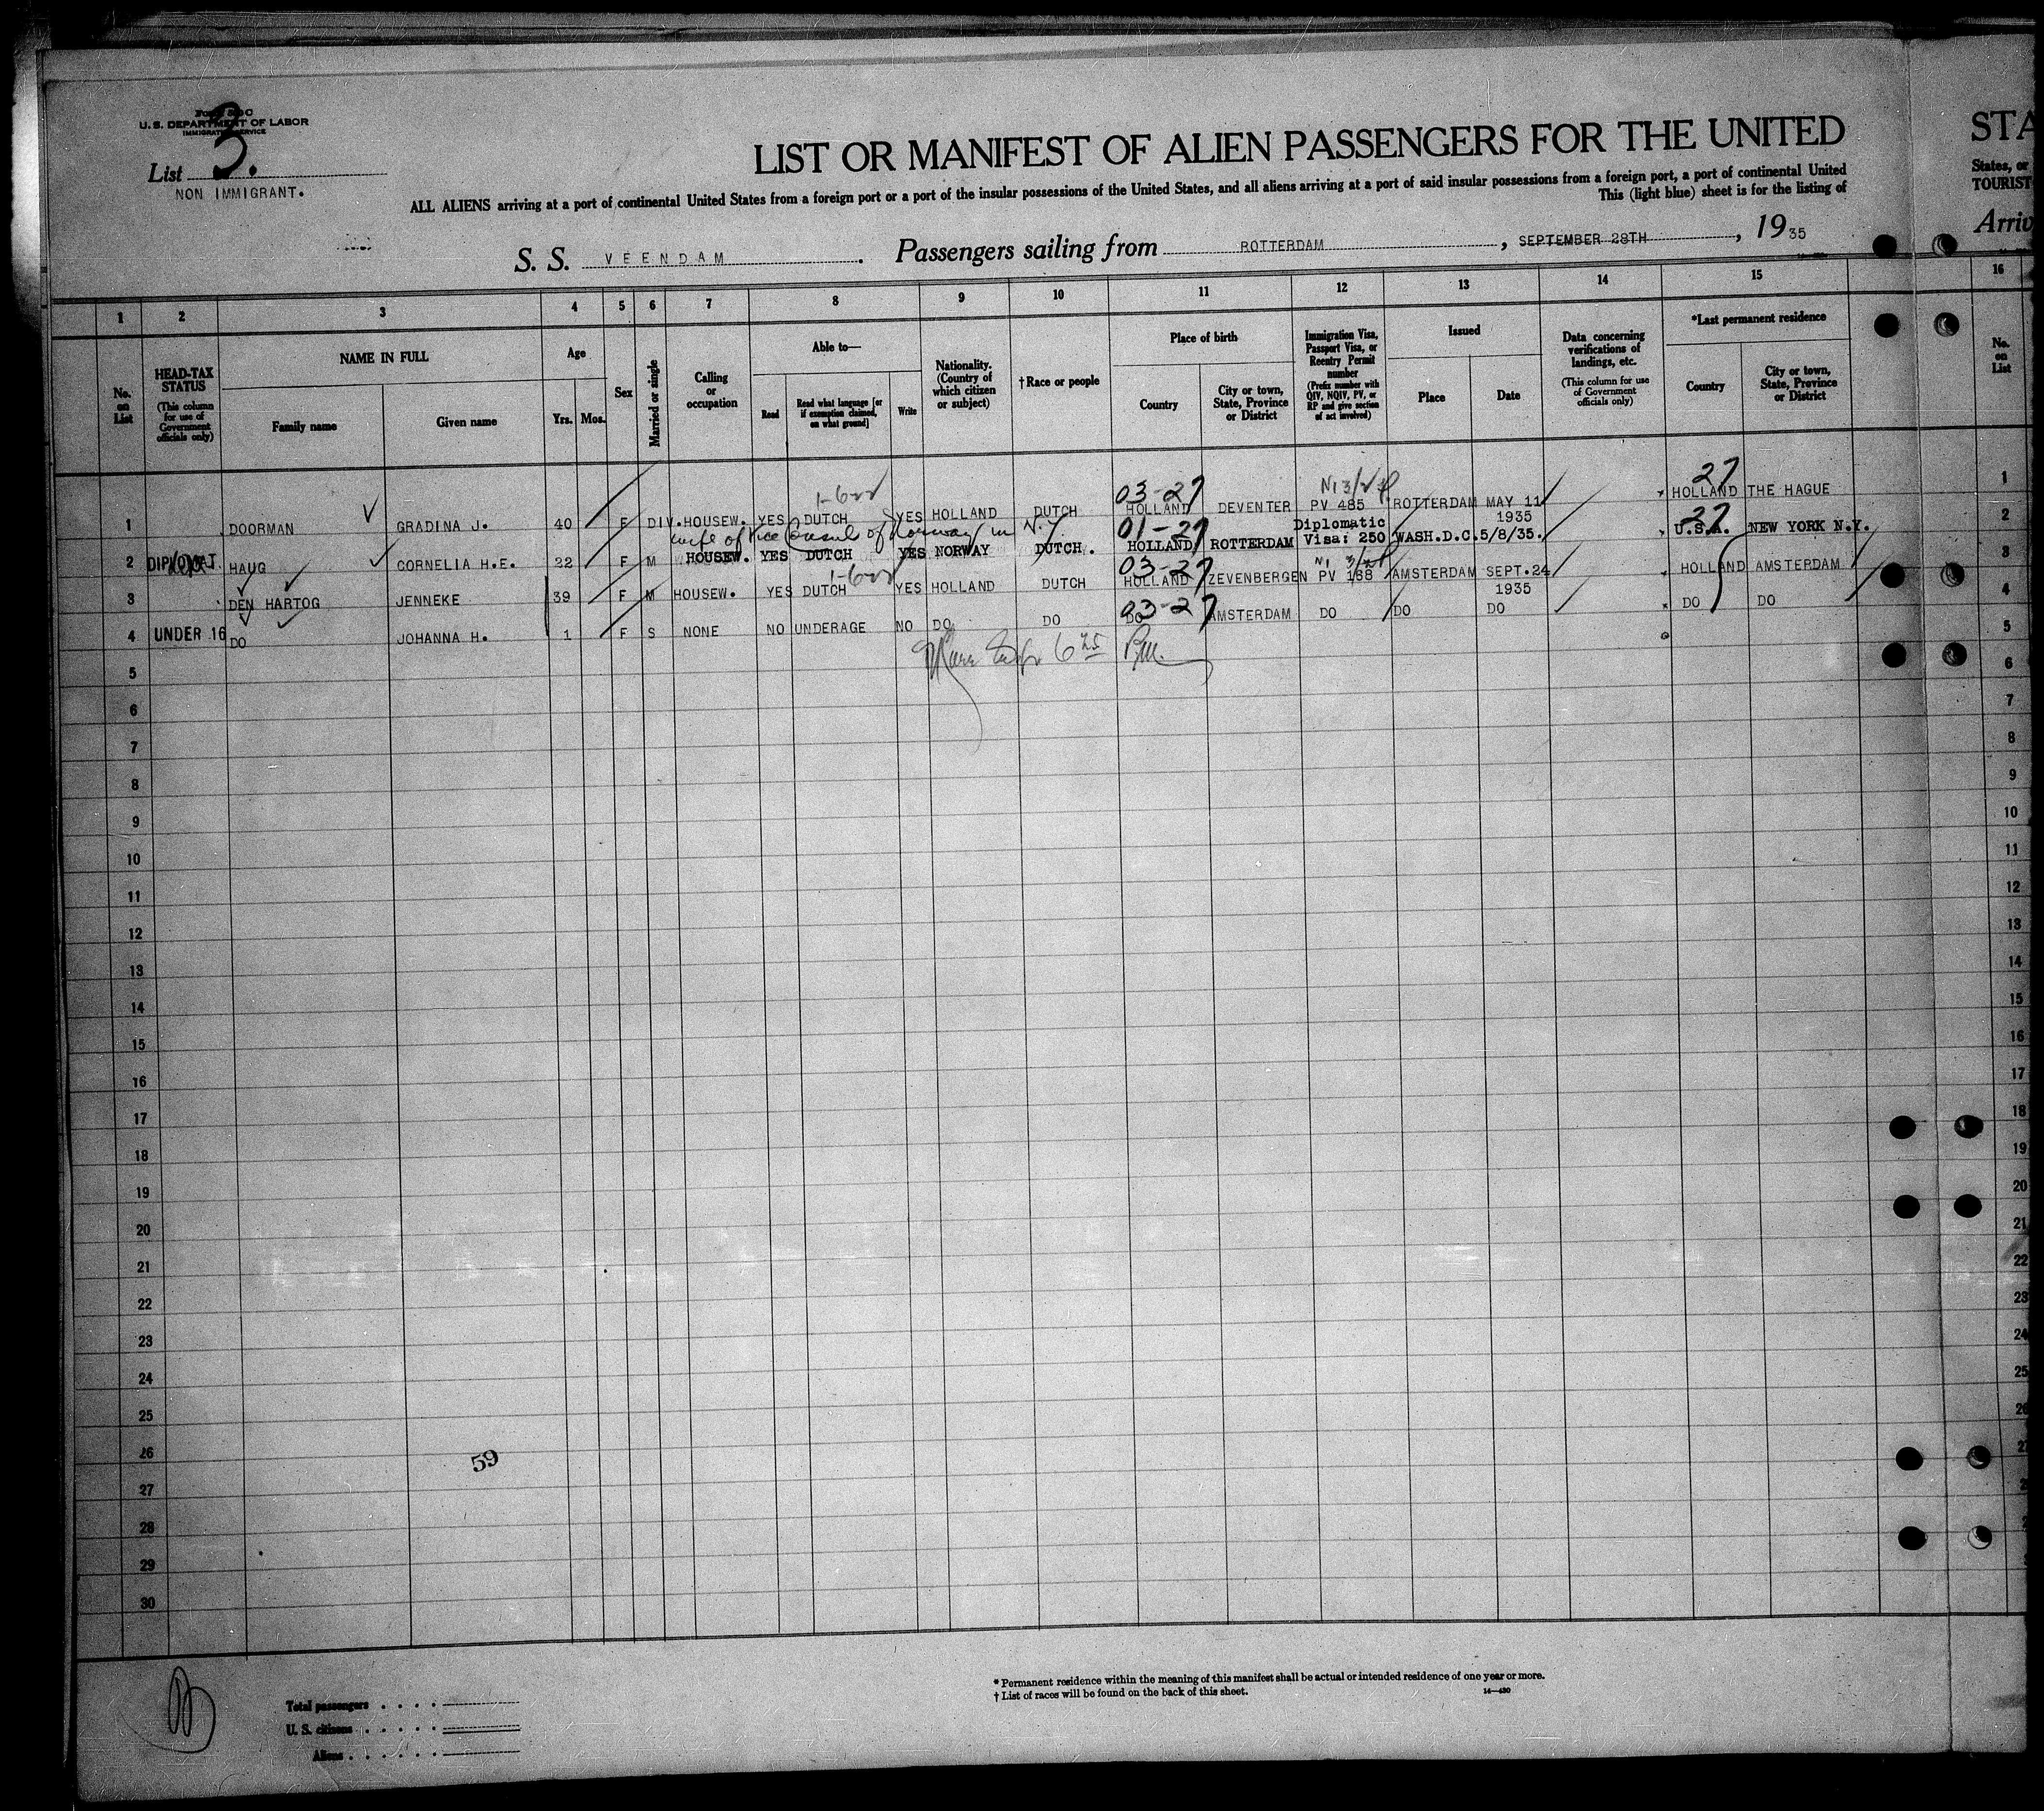 Form 500 C
U. S. DEPARTMENT OF LABOR
IMMIGRATION SERVICE
List 3.
NON IMMIGRANT.
LIST OR MANIFEST OF ALIEN PASSENGERS FOR THE UNITED
STA
ALL ALIENS arriving at a port of continental United States from a foreign port or a port of the insular possessions of the United States, and all aliens arriving at a port of said insular possessions from a foreign port, a port of continental United
States, or
This (light blue) sheet is for the listing of
TOURIST
S. S. VEENDAM. Passengers sailing from ROTTERDAM, SEPTEMBER 28TH, 1935
Arriv
1 2 3 4 5 6 7 8 9 10 11 12 13 14 15 16
No. on List
HEAD-TAX STATUS
(This column for use of Government officials only)
NAME IN FULL
Family name
Given name
Age
Yrs. Mos.
Sex
Married or single
Calling or occupation
Able to—
Read
Read what language [or if exemption claimed, on what ground]
Write
Nationality. (Country of which citizen or subject)
†Race or people
Place of birth
Country
City or town, State, Province or District
Immigration Visa, Passport Visa, or Reentry Permit number
(Prefix number with QIV, NQIV, PV, or RP and give section of act involved)
Issued
Place
Date
Data concerning verifications of landings, etc.
(This column for use of Government officials only)
*Last permanent residence
Country
City or town, State, Province or District
No. on List
03-27
27
1 DOORMAN GRADINA J. 40 F DIV. HOUSEW. YES DUTCH YES HOLLAND DUTCH HOLLAND DEVENTER PV 485 ROTTERDAM MAY 11 1935 HOLLAND THE HAGUE 1
wife of Vice Consul of Norway in N.Y.
01-27
27
2 DIPLOMAT. HAUG CORNELIA H.E. 22 F M HOUSEW. YES DUTCH YES NORWAY DUTCH. HOLLAND ROTTERDAM Diplomatic Visa: 250 WASH.D.C. 5/8/35. U.S.A. NEW YORK N.Y. 2
03-27
3 DEN HARTOG JENNEKE 39 F M HOUSEW. YES DUTCH YES HOLLAND DUTCH HOLLAND ZEVENBERGEN PV 188 AMSTERDAM SEPT.24 1935 HOLLAND AMSTERDAM 3
03-27
4 UNDER 16 DO JOHANNA H. 1 F S NONE NO UNDERAGE NO DO DO DO AMSTERDAM DO DO DO DO DO 4
5 5
6 6
7 7
8 8
9 9
10 10
11 11
12 12
13 13
14 14
15 15
16 16
17 17
18 18
19 19
20 20
21 21
22 22
23 23
24 24
25 25
26 26
59
27
28
29
30
Total passengers
U. S. citizens
Aliens
* Permanent residence within the meaning of this manifest shall be actual or intended residence of one year or more.
† List of races will be found on the back of this sheet.
14—430